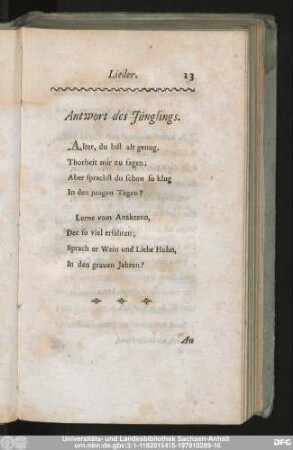 Lieder. 13
Antwort des Jünglings.
„Alter, du bist alt genug,
Thorheit mir zu sagen;
Aber sprachst du schon so klug
In den jungen Tagen?
Lerne vom Anakreon,
Der so viel erfahren;
Sprach er Wein und Liebe Hohn,
In den grauen Jahren?
An
Universitäts- und Landesbibliothek Sachsen-Anhalt
urn:nbn:de:gbv:3:1-1192015415-197910269-16
DFG